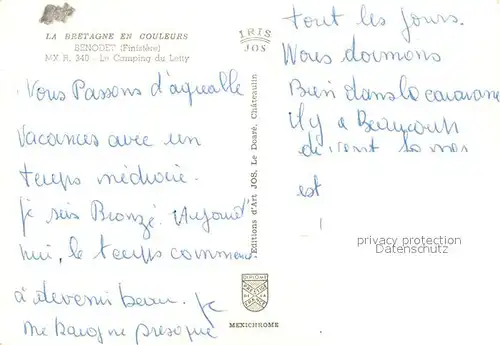 LA BRETAGNE EN COULEURS
BENODET (Finistère)
MX R. 340 - Le Camping du Letty
IRIS
JOS
Editions d'Art JOS, Le Doaré, Châteaulin
Vous Passons d'agreable
vacances avec un
temps médiocre.
je suis Bronzé. Aujourd'
hui, le temps commence
à devenir beau. je
me baigne presque
tout les jours.
Nous dormons
Bien dans la caravane
il y a Beaucoup
de vent la mer
est
privacy protection
Datenschutz
MEXICHROME